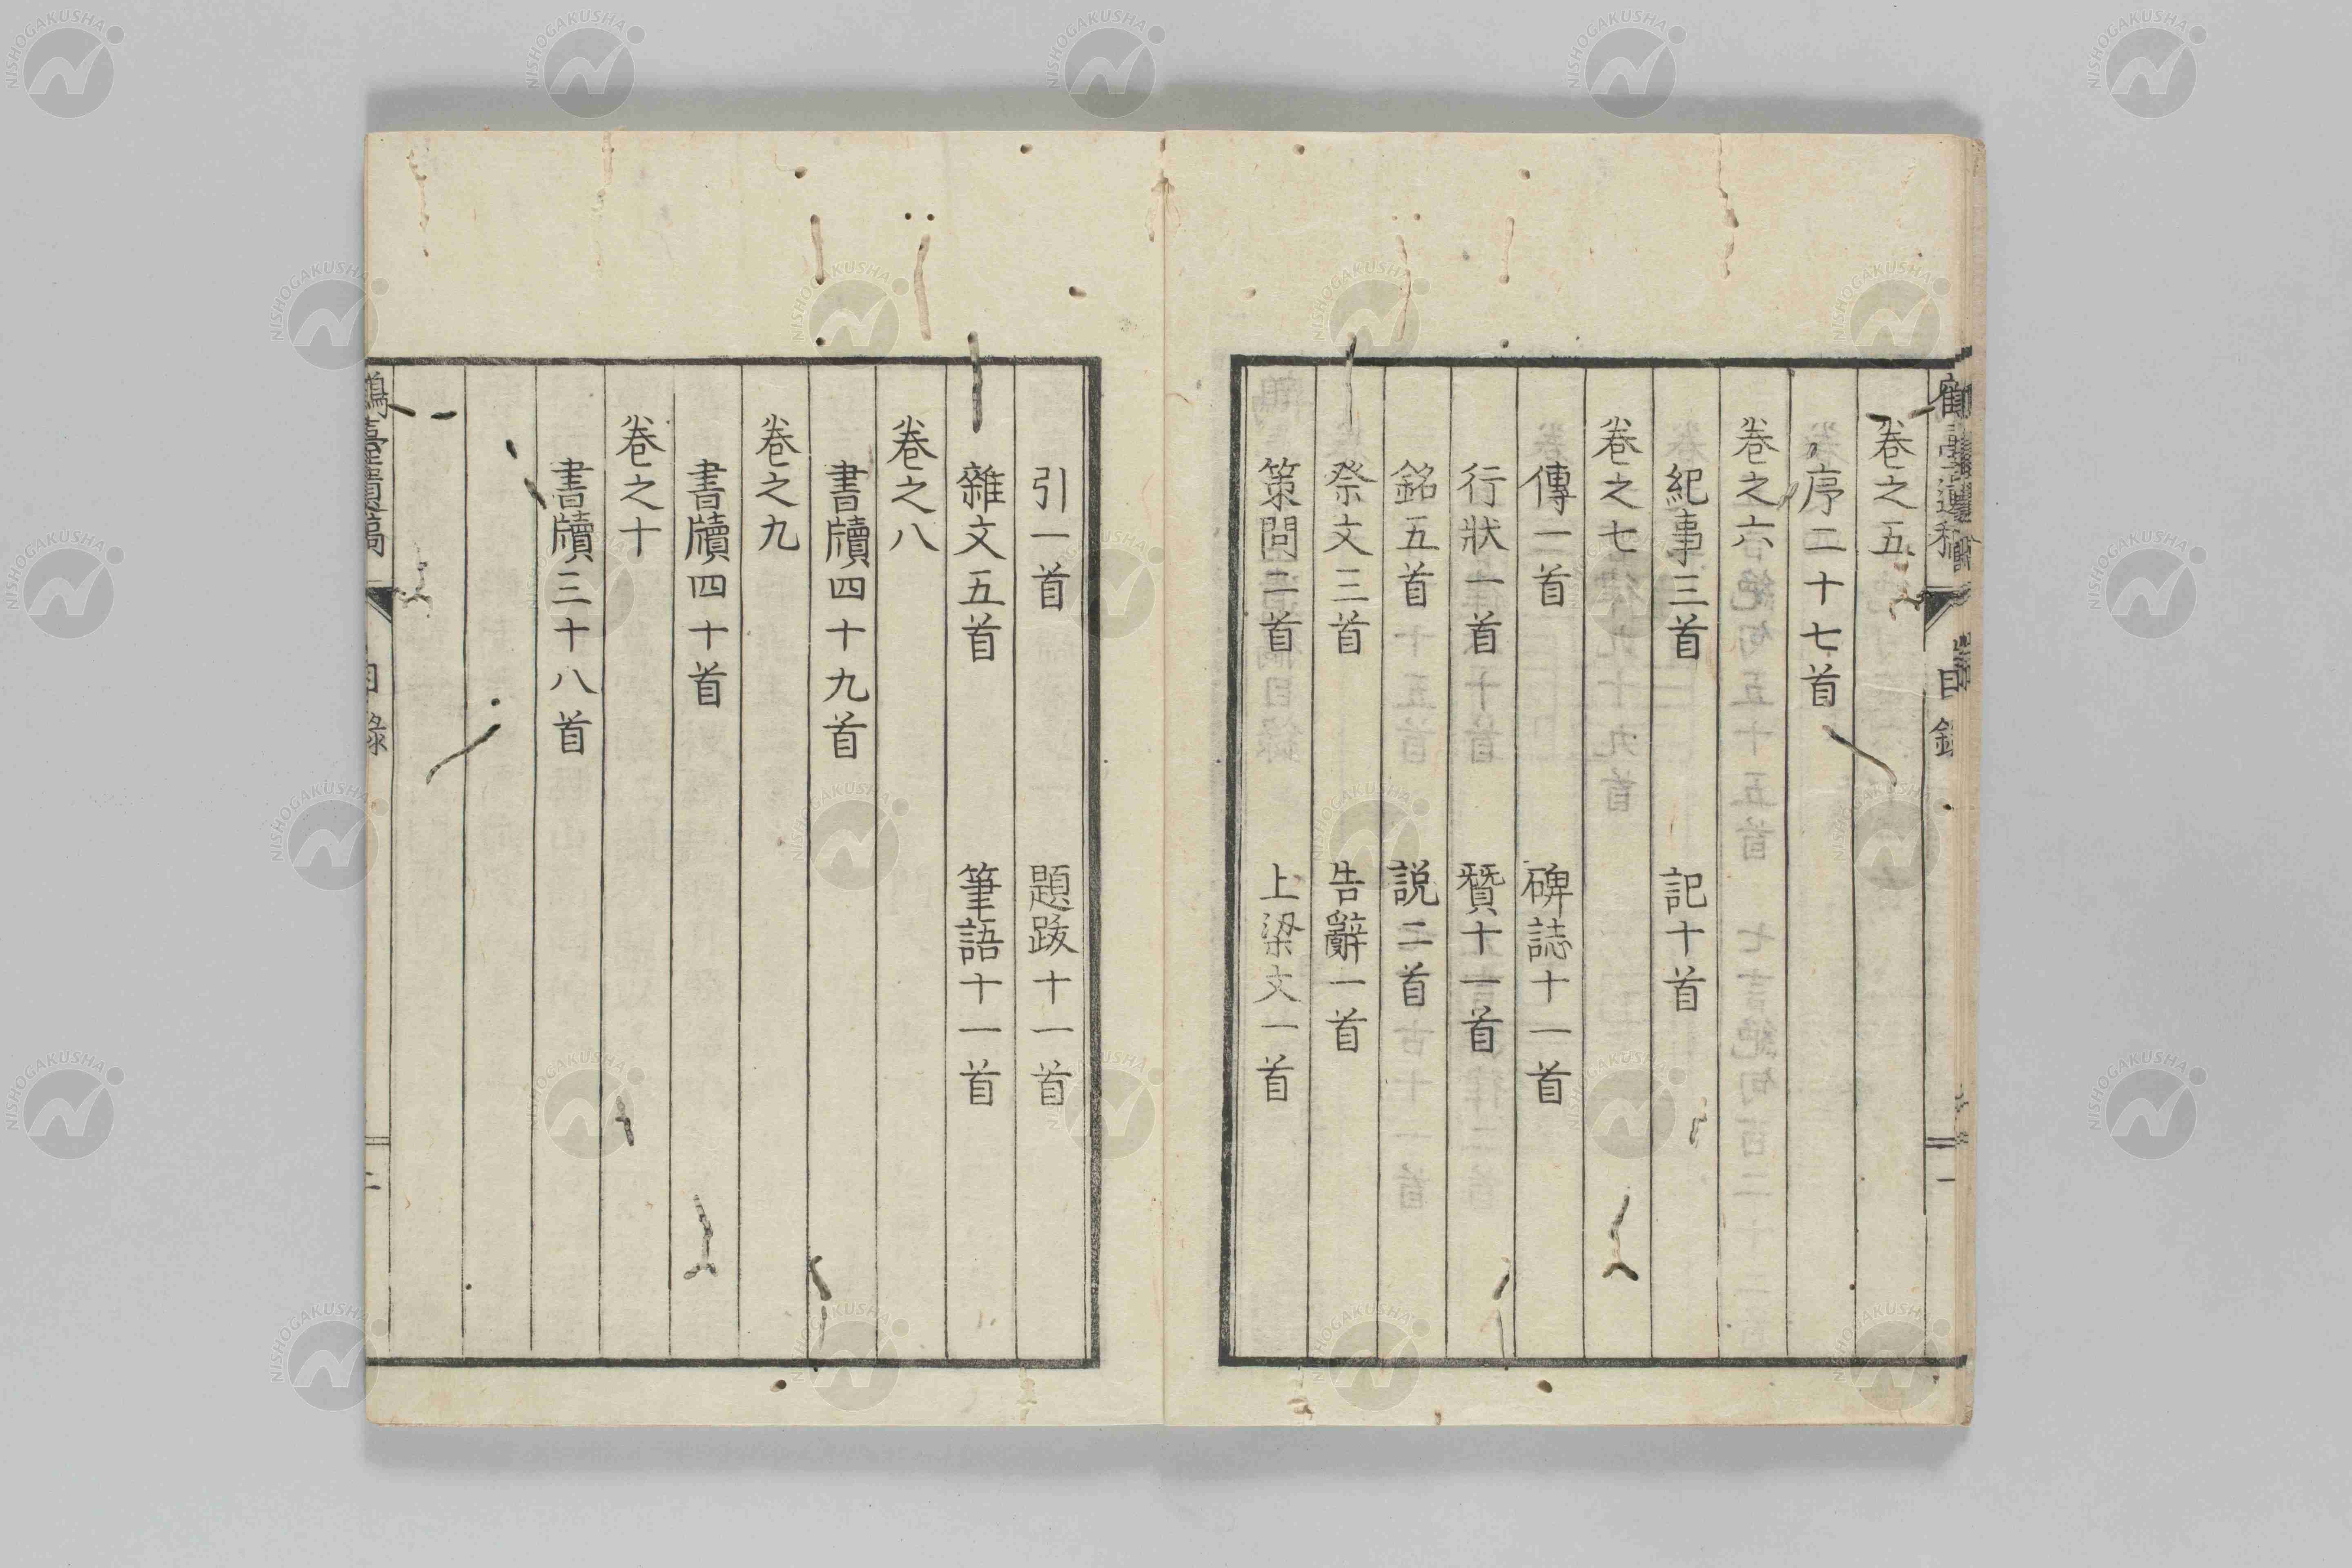 卷之五
序二十七首
卷之六
紀事三首 記十首
卷之七
傳二首 碑誌十一首
行狀一首 贊十一首
銘五首 説二首
祭文三首 告辭一首
策問二首 上梁文一首
目錄
一
引一首 題跋十一首
雜文五首 筆語十一首
卷之八
書牘四十九首
卷之九
書牘四十首
卷之十
書牘三十八首
鶴臺遺稿
目錄
二
NISHOGAKUSHA